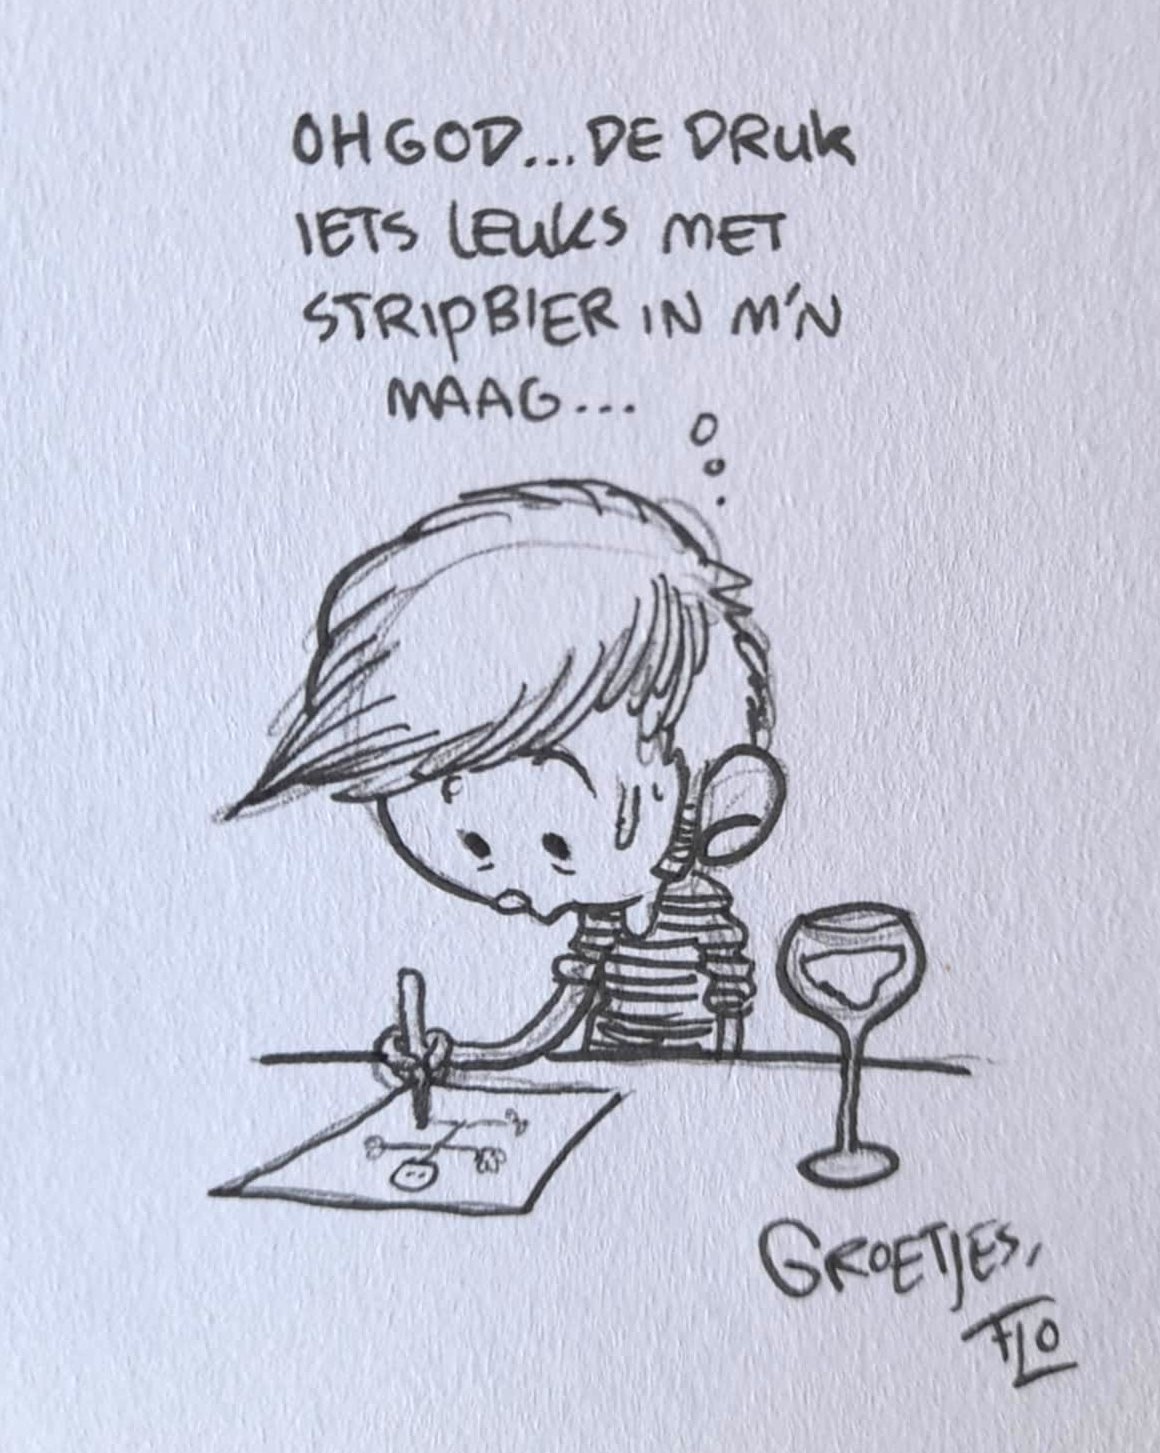 OH GOD... DE DRUK
IETS LEUKS MET
STRIPBIER IN M'N
MAAG...
GROETJES,
FLO